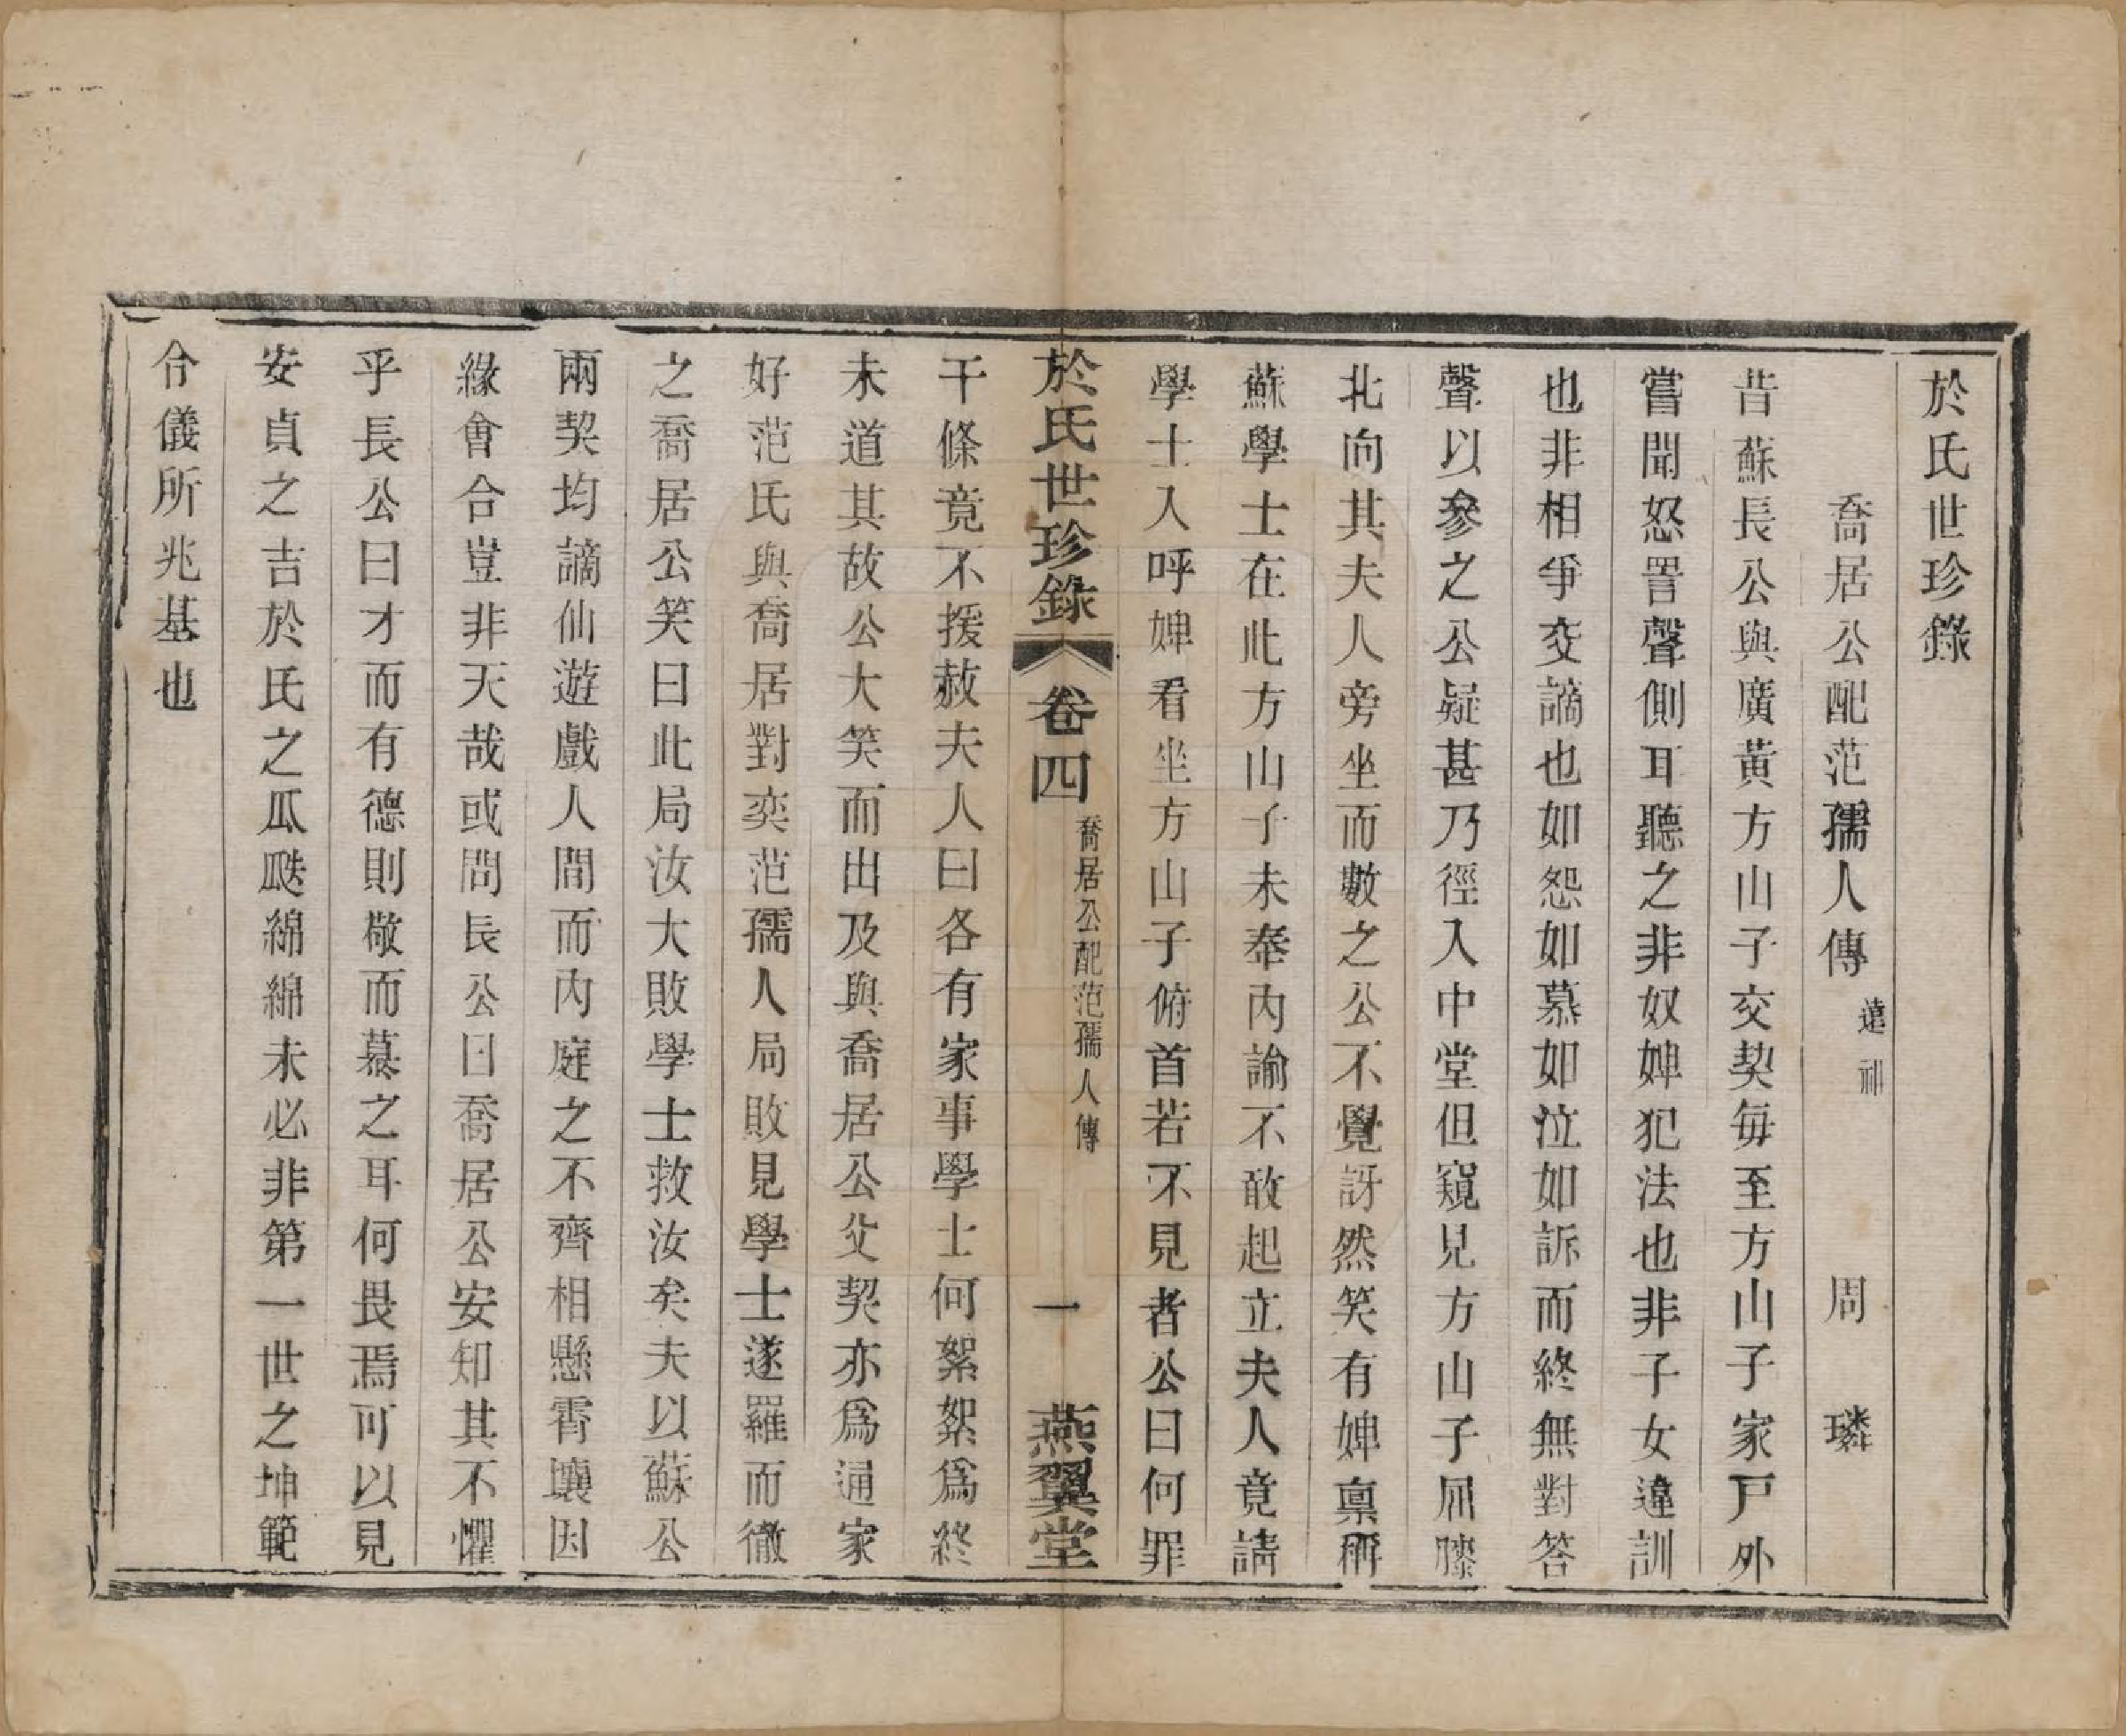 於氏世珍錄
喬居公配范孺人傳 遠祖 周璘
昔蘇長公與廣黃方山子交契每至方山子家戸外
嘗聞怒詈聲側耳聽之非奴婢犯法也非子女違訓
也非相爭交謫也如怨如慕如泣如訴而終無對答
聲以參之公疑甚乃徑入中堂但窺見方山子屈膝
北向其夫人旁坐而數之公不覺訝然笑有婢稟稱
蘇學士在此方山子未奉內諭不敢起立夫人竟請
學士入呼婢看坐方山子俯首若不見者公曰何罪
於氏世珍錄 卷四 喬居公配范孺人傳 一 燕翼堂
干條竟不援赦夫人曰各有家事學士何絮絮爲終
未道其故公大笑而出及與喬居公父契亦爲通家
好范氏與喬居對奕范孺人局敗見學士遂羅而徹
之喬居公笑曰此局汝大敗學士救汝矣夫以蘇公
兩契均謫仙遊戲人間而內庭之不齊相懸霄壤因
緣會合豈非天哉或問長公曰喬居公安知其不懼
乎長公曰才而有德則敬而慕之耳何畏焉可以見
安貞之吉於氏之瓜瓞綿綿未必非第一世之坤範
令儀所兆基也